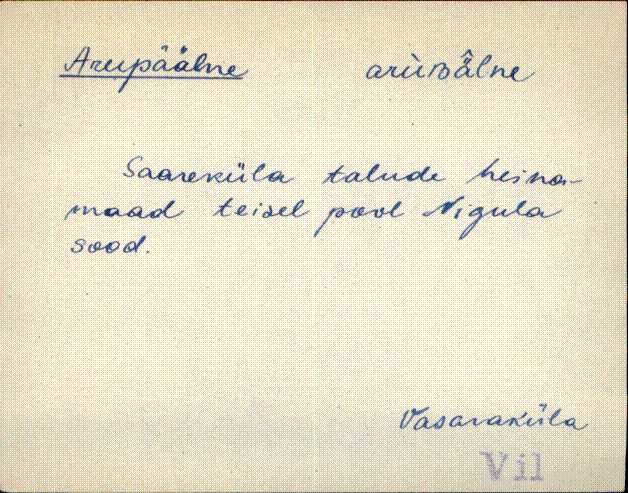 Arupäälne arùʙä̂lne
Saareküla talude heina-
maad teisel pool Nigula
sood.
Vasaraküla
Vil